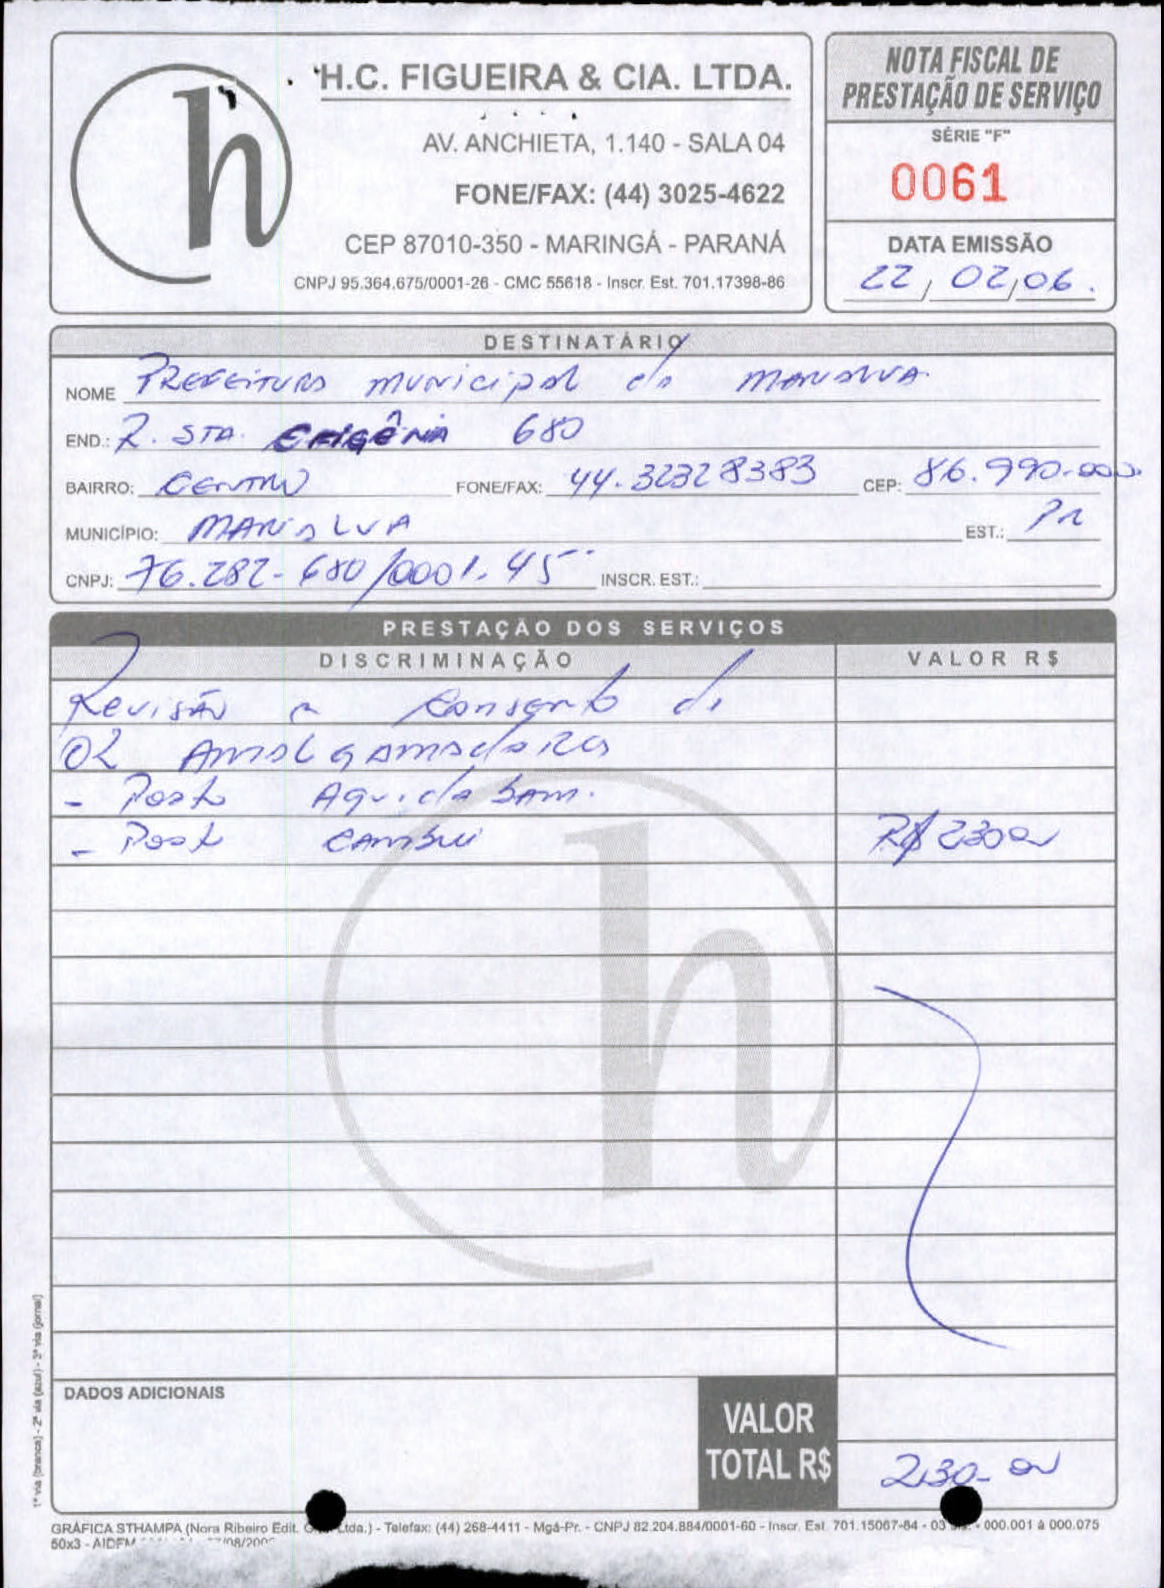 H.C. FIGUEIRA & CIA. LTDA.
AV. ANCHIETA, 1.140 - SALA 04
FONE/FAX: (44) 3025-4622
CEP 87010-350 - MARINGÁ - PARANÁ
CNPJ 95.364.675/0001-26 - CMC 55618 - Inscr. Est. 701.17398-86
h
NOTA FISCAL DE
PRESTAÇÃO DE SERVIÇO
SÉRIE "F"
0061
DATA EMISSÃO
22/02/06.
DESTINATÁRIO
NOME Prefeitura municipal de MARIALVA
END.: R. STA. EFIGÊNIA 680
BAIRRO: CENTRO FONE/FAX: 44.32328383 CEP: 86.990.000
MUNICÍPIO: MARIALVA EST.: Pr
CNPJ: 76.282.680/0001.45 INSCR. EST.:
PRESTAÇÃO DOS SERVIÇOS
DISCRIMINAÇÃO VALOR R$
Revisão e Conserto de
02 Amalgamadores
- Posto Aquidaban.
- Posto Cambui R$ 230,00
h
DADOS ADICIONAIS
VALOR
TOTAL R$ 230,00
1ª via (branca) - 2ª via (azul) - 3ª via (jornal)
GRÁFICA STHAMPA (Nora Ribeiro Edit. Ltda.) - Telefax: (44) 268-4411 - Mgá-Pr. - CNPJ 82.204.884/0001-60 - Inscr. Est. 701.15067-84 - 03 - 000.001 à 000.075
50x3 - AIDFM /08/200